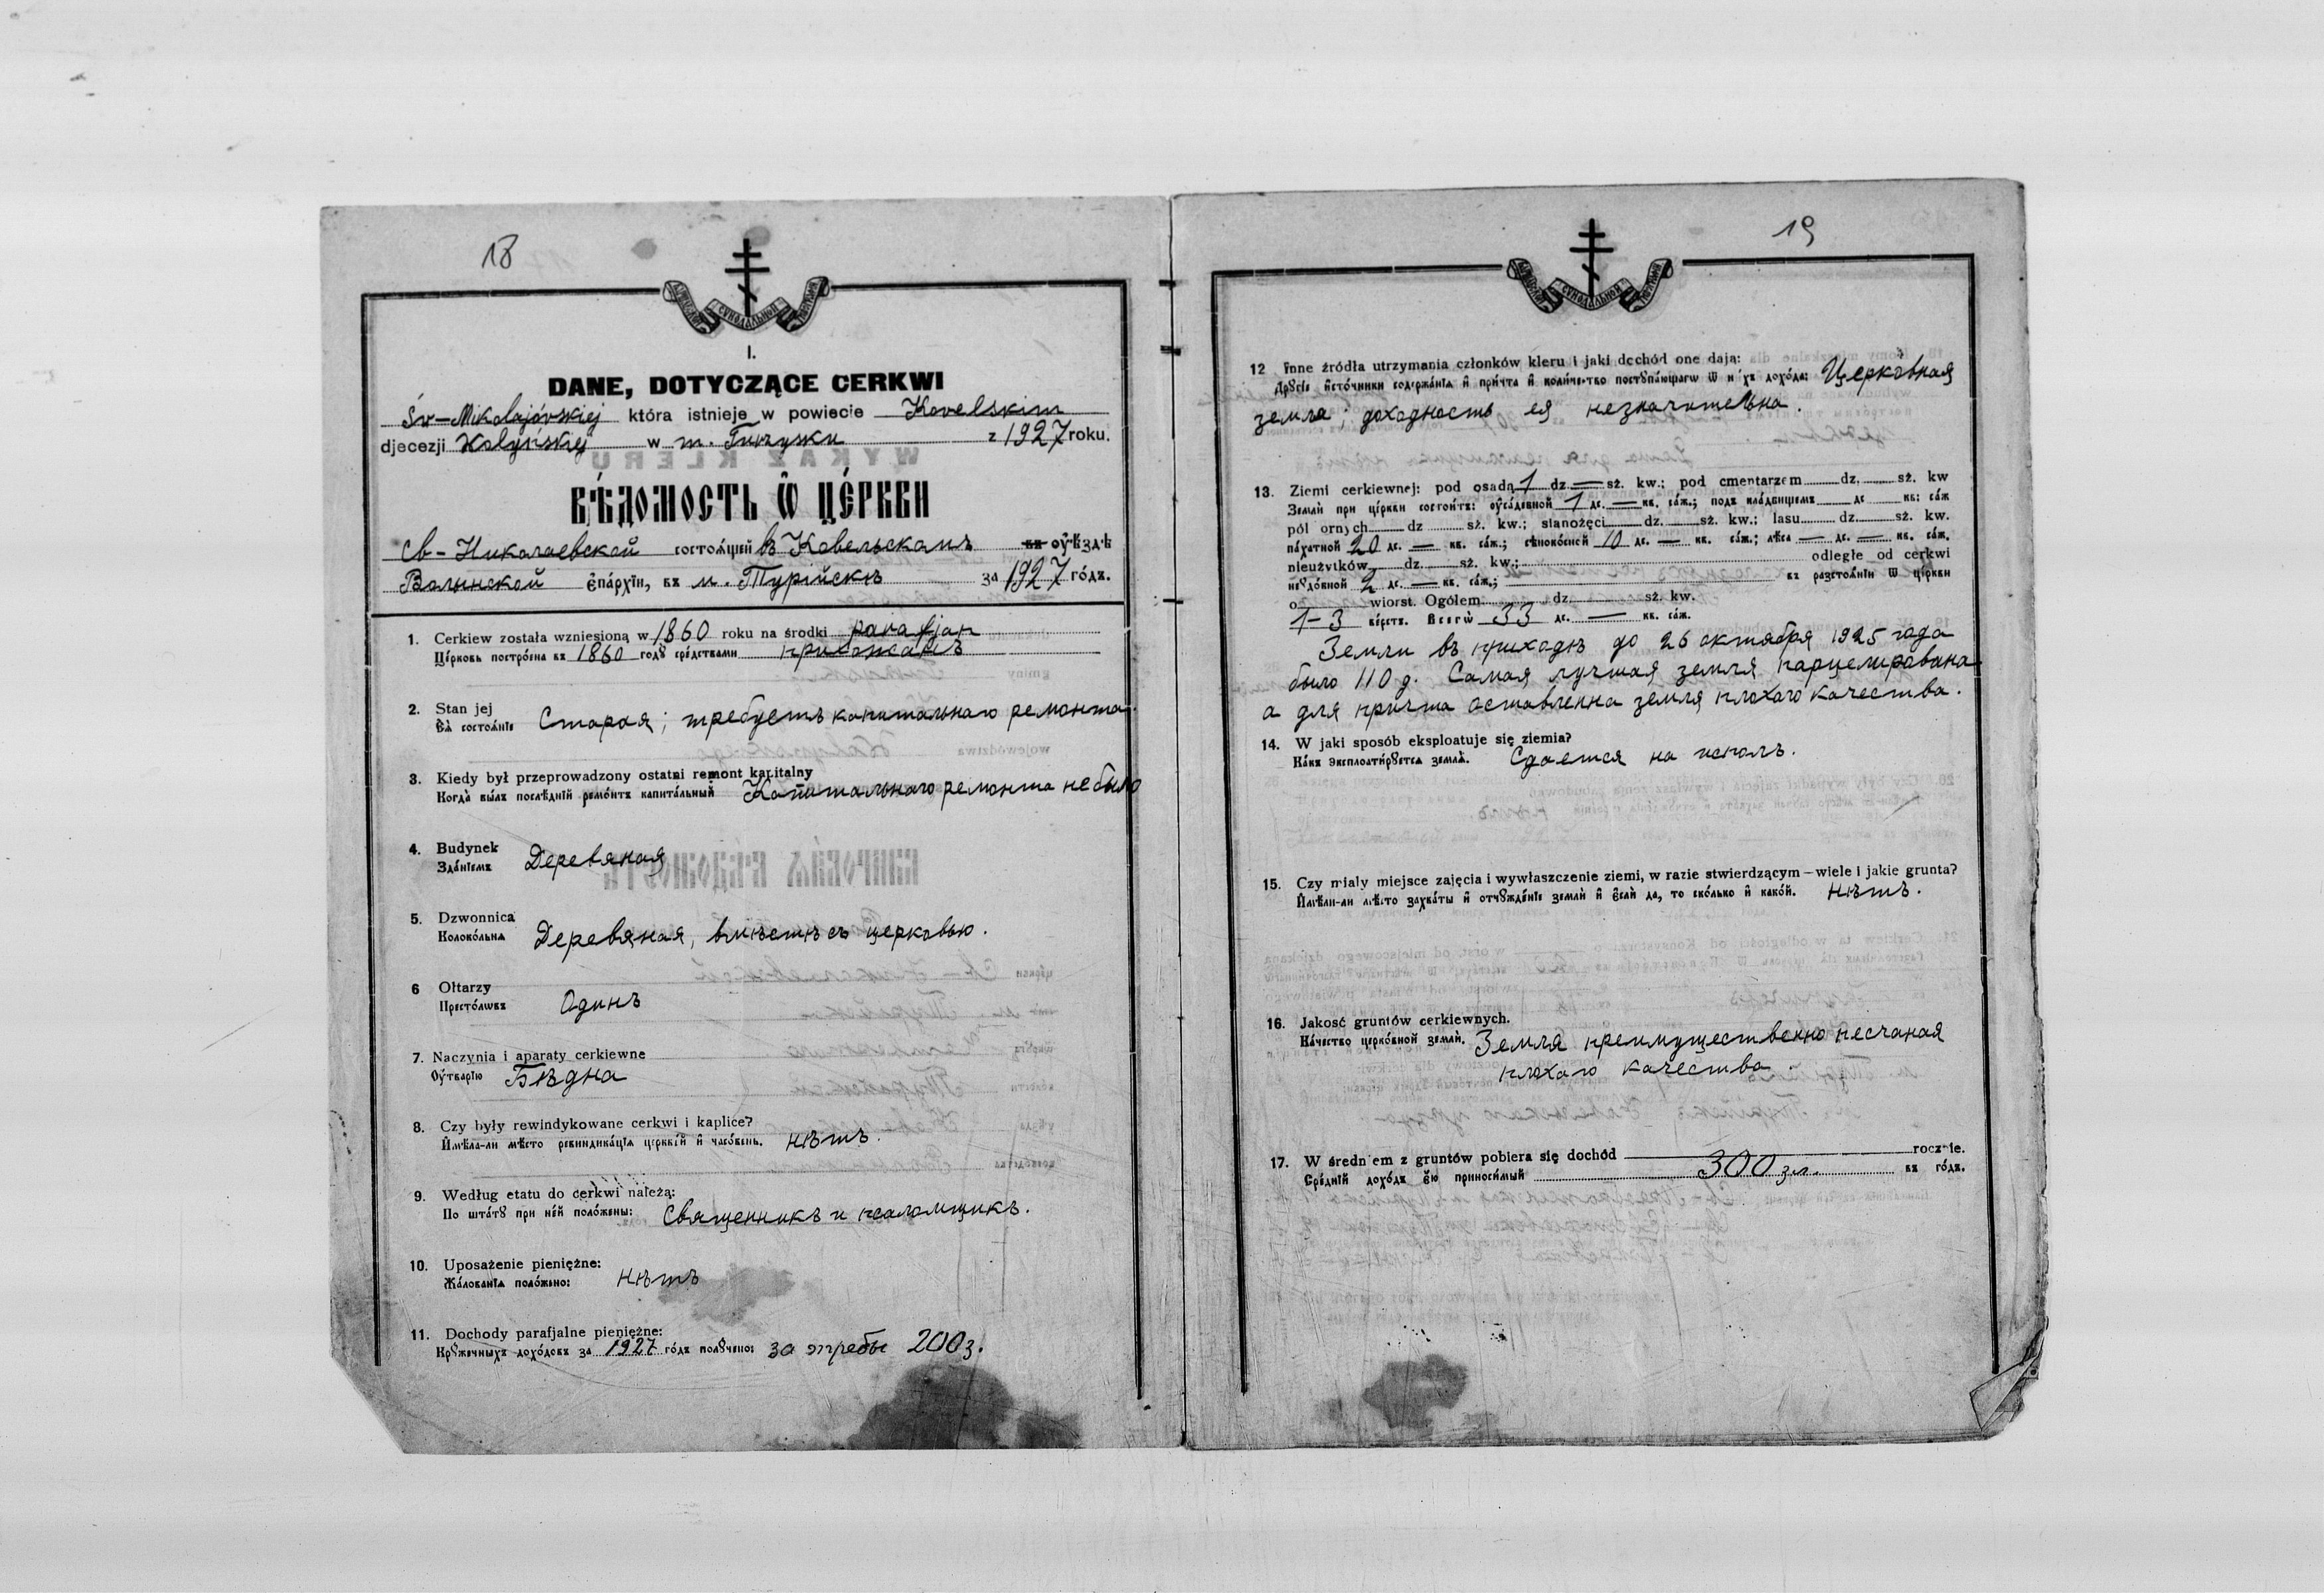 18
I.
DANE, DOTYCZĄCE CERKWI
Św-Mikołajówskiej która istnieje w powiecie Kovelskim
djecezji Wołyńskiej w m. Turzysku z 1927 roku.
ВѢ́ДОМОСТЬ Ѡ҆ ЦЕ́РКВИ
Св-Николаевской состоѧ́щей въ Ковельскомъ въ оуѣздѣ
Волынской є҆па́рхїи, въ м. Турійскѣ за 1927 го́дъ.
1. Cerkiew została wzniesioną w 1860 roku na środki parafjan
Це́рковь постро́ена въ 1860 годꙋ̀ сре́дствами прихожанъ
2. Stan jej
Въ состоѧ́нїе Старая; требуетъ капитальнаго ремонта.
3. Kiedy był przeprowadzony ostatni remont kapitalny
Когда̀ бы́лъ послѣ́днїй ремо́нтъ капита́льный Капитальнаго ремонта не было
4. Budynek
Зда́нїемъ Деревяная
5. Dzwonnica
Колоко́льна Деревяная, вмѣстѣ съ церковью.
6 Ołtarzy
Престо́лѡвъ Одинъ
7. Naczynia i aparaty cerkiewne
Оу҆́тварїю Бѣдна
8. Czy były rewindykowane cerkwi i kaplice?
И҆мѣ́ла-ли мѣ́сто ревиндика́цїѧ церкве́й и҆ часо́вень. нѣтъ.
9. Według etatu do cerkwi należą:
По шта́тꙋ при не́й поло́жены: Священникъ и псаломщикъ.
10. Uposażenie pieniężne:
Жа́лованїѧ поло́жено: нѣтъ
11. Dochody parafjalne pieniężne:
Крꙋ́жечныхъ дохо́довъ за 1927 го́дъ полꙋ́чено: за требы 200 з.
19
12 Inne źródła utrzymania członków kleru i jaki dochód one dają:
Дрꙋгі́е и҆сто́чники содержа́нїѧ и҆ при́чта и҆ коли́чество постꙋпа́ющагѡ ѿ ни́хъ дохо́да: Церковная
земля; доходность ея незначительна.
13. Ziemi cerkiewnej: pod osadą 1 dz — sż. kw.; pod cmentarzem dz. sż. kw
Земли́ при це́ркви состои́тъ: оу҆са́дебной 1 де. — кв. са́ж.; подъ кла́дбищемъ де кв: са́ж
pól ornych dz sż. kw.; sianożęci dz. sż. kw.; lasu dz. sż. kw.
па́хатной 20 де. — кв. са́ж.; сѣноко́сной 10 де. — кв. са́ж.; лѣ́са — де. — кв. са́ж.
nieużytków dz. sż. kw.; odległe od cerkwi
неꙋдо́бной 2 де. — кв. са́ж.; въ разстоѧ́нїи ѿ це́ркви
o wiorst. Ogółem dz. sż. kw.
1-3 ве́рстъ. Всегѡ̀ 33 де. — кв. са́ж.
Земли въ приходѣ до 26 октября 1925 года
было 110 д. Самая лучшая земля парцелирована
а для причта оставленна земля плохого качества.
14. W jaki sposób eksploatuje się ziemia?
Ка́къ эксплоати́рꙋетсѧ землѧ̀. Сдается на исполъ.
15. Czy mialy miejsce zajęcia i wywłaszczenie ziemi, w razie stwierdzącym — wiele i jakie grunta?
И҆мѣ́ли-ли мѣ́сто захва́ты и҆ отчꙋжде́нїе земли́ и҆ є҆слѝ да, то ско́лько и҆ како́й. нѣтъ.
16. Jakość gruntów cerkiewnych.
Ка́чество церко́вной земли́. Земля преимущественно песчаная
плохого качества.
17. W średniem z gruntów pobiera się dochód rocznie.
Сре́днїй дохо́дъ є҆́ю приноси́мый 300 зл. въ го́дъ.